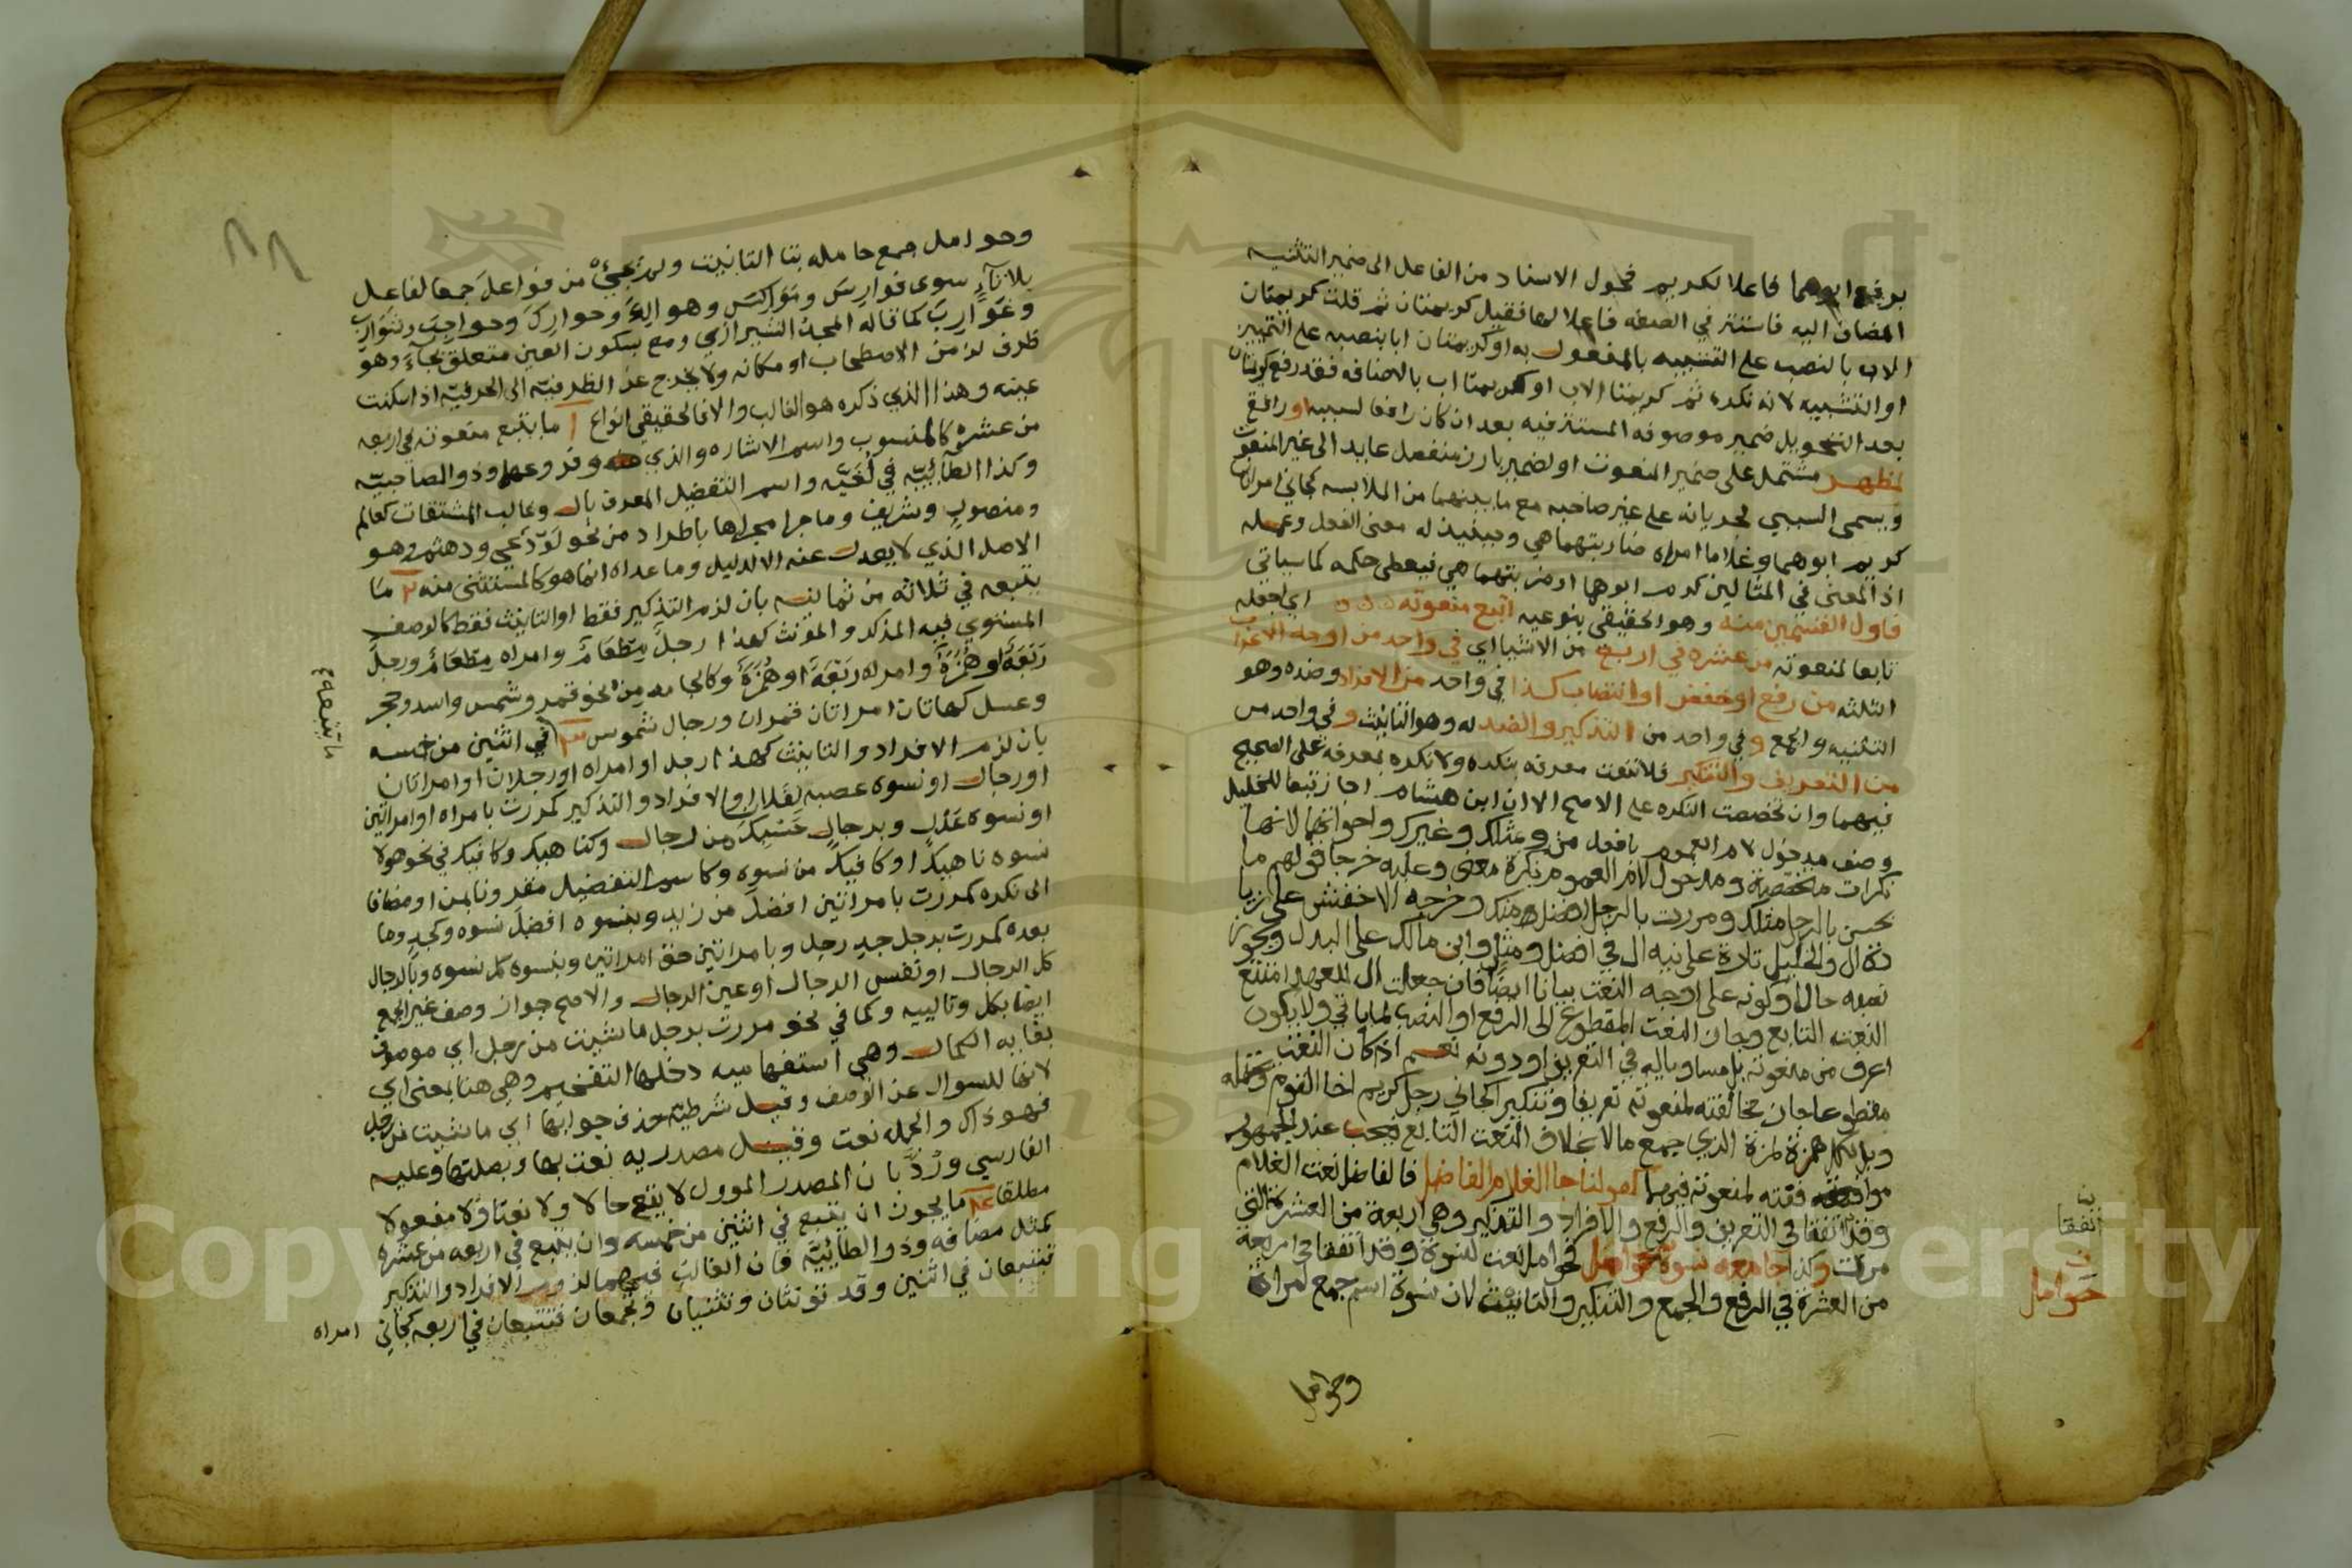 برفع ابوهما فاعلا لكريم فحول الاسناد من الفاعل الى ضمير التثنيه
المضاف اليه فاستتر في الصفه فاعلا لها فقيل كريمتان ثم قلت كريمتان
الاب بالنصب على التشبيه بالمفعول به او كريمتان ابا بنصبه على التمييز
او التشبيه لانه نكره ثم كريمتا الاب او كريمتا اب بالاضافه فقد رفع كريمتان
بعد التحويل ضمير موصوفه المستتر فيه بعد ان كان رافعا لسببيه او رافع
لمظهر مشتمل على ضمير المنعوت او لضمير بارز منفصل عايد الى غير المنعوت
ويسمى السببي لجريانه على غير صاحبه مع ما بينهما من الملابسه كجاني امراتان
كريم ابوهما وغلاما امراه ضاربتهما هي وحينيذ له معنى الفعل وعمله
اذ المعنى في المثالين كرم ابوهما او ضربتهما هي فيعطى حكمه كما سياتي
فاول القسمين منه وهو الحقيقي بنوعيه اتبع منعوته اي اجعله
تابعا لمنعوته من عشره في اربع من الاشيا اي في واحد من اوجه الاعراب
الثلثه من رفع او خفض او انتصاب كذا في واحد من الافراد وضده وهو
التثنيه والجمع وفي واحد من التذكير والضد له وهو التانيث وفي واحد من
من التعريف والتنكير فلا تنعت معرفه بنكره ولا نكره بمعرفه على الصحيح
فيهما وان تخصصت النكره على الاصح الا ان ابن هشام اجاز تبعا للخليل
وصف مدخول لام العموم بافعل من ومثلك وغيرك واخواتها لانها
نكرات متخصصة ومدخول لام العموم نكرة معنى وعليه خرجا قولهم ما
يحسن بالرجل مثلك ومررت بالرجل افضل منك وخرجه الاخفش على زيا
دة ال والخليل تارة على نيه ال في افضل ومثل وابن مالك على البدل ويجوز
نصبه حالا وكونه على اوجه النعت بيانا ايضا فان جعلت ال للعهد امتنع
النعت التابع وجاز النعت المقطوع الى الرفع او النصب لما ياتي ولا يكون
اعرف من منعوته بل مساويا له في التعريف او دونه نعم اذا كان النعت
مقطوعا جاز مخالفته لمنعوته تعريفا وتنكيرا كجاني رجل كريم اخا القوم
ويل لكل همزة لمزة الذي جمع مالا بخلاف النعت التابع فيجب عند الجمهور
موافقته لمنعوته فيهما كقولنا جا الغلام الفاضل فالفاضل نعت الغلام
وقد اتفقا في التعريف والرفع والافراد والتذكير وهي اربعة من العشرة التي
مرت وكذا جا معه نسوة حوامل فحوامل نعت لنسوة وقد اتفقا في اربعة
من العشرة في الرفع والجمع والتنكير والتانيث لان نسوة اسم جمع لمراة
اتفقا
حوامل
وحوامل
وحوامل جمع حامله بتا التانيث ولم يجئ من فواعل جمعا لفاعل
بلا تآء سوى فوارس ونواكس وهوالك وحوارك وحواجب وشوارب
وغوارب كما قاله المجد الشيرازي ومع بسكون العين متعلق بجآء وهو
ظرف لزمن الاصطحاب او مكانه ولا يخرج عن الظرفيه الى الحرفيه اذا سكنت
عينه وهذا الذي ذكره هو الغالب والا فالحقيقي انواع ١ ما يتبع منعوته في اربعه
من عشره كالمنسوب واسم الاشاره والذي وفروعهما وذو الصاحبيه
وكذا الطآئيه في لغيه واسم التفضيل المعرف بال وغالب المشتقات كعالم
ومنصوب وشريف وما جرا مجراها باطراد من نحو لوذعي ودهثم وهو
الاصل الذي لا يعدل عنه الا لدليل وما عداه انما هو كالمستثنى منه ٢ ما
يتبعه في ثلاثه من ثمانيه بان لزم التذكير فقط او التانيث فقط كالوصف
المستوي فيه المذكر والمونث كهذا رجل مطعام وامراه مطعام ورجل
ربعة او همزة وامراه ربعة او همزة وكالجامد من نحو قمر وشمس واسد وحجر
وعسل كهاتان امراتان قمران ورجال شموس ٣ في اثنين من خمسه
بان لزم الافراد والتانيث كهذا رجل او امراه او رجلان او امراتان
او رجال او نسوه عصبه او الافراد والتذكير كمررت بامراه او امراتين
او نسوه عدل وبرجال حسبك من رجال وكناهيك وكافيك في نحو هولا
نسوه ناهيك او كافيك من نسوه وكاسم التفضيل مقرونا بمن او مضافا
الى نكره كمررت بامراتين افضل من زيد وبنسوه افضل نسوه وكجد وما
بعده كمررت برجل جد رجل وبامراتين حق امراتين وبنسوه كل نسوه وبالرجال
كل الرجال او نفس الرجال او عين الرجال والاصح جواز وصف غير الجمع
ايضا بكل وتالييه وكما في نحو مررت برجل ما شيت من رجل اي موصوف
بغايه الكمال وهي استفهاميه دخلها التفخيم وهي هنا بمعنى اي
لانها للسوال عن الوصف وقيل شرطيه حذف جوابها اي ما شيت من رجل
فهو ذاك والجمله نعت وقيل مصدريه نعت بها وبصلتها وعليه
الفارسي ورد بان المصدر الموول لا يقع حالا ولا نعتا ولا مفعولا
مطلقا ٤ ما يجوز ان يتبع في اثنين من خمسه وان يتبع في اربعه من عشره
كمثل مضافه وذو الطائيه فان الغالب فيهما لزوم الافراد والتذكير
فتتبعان في اثنين وقد تونثان وتثنيان وتجمعان فتتبعان في اربعه كجاني
امراه
ما يتبعه